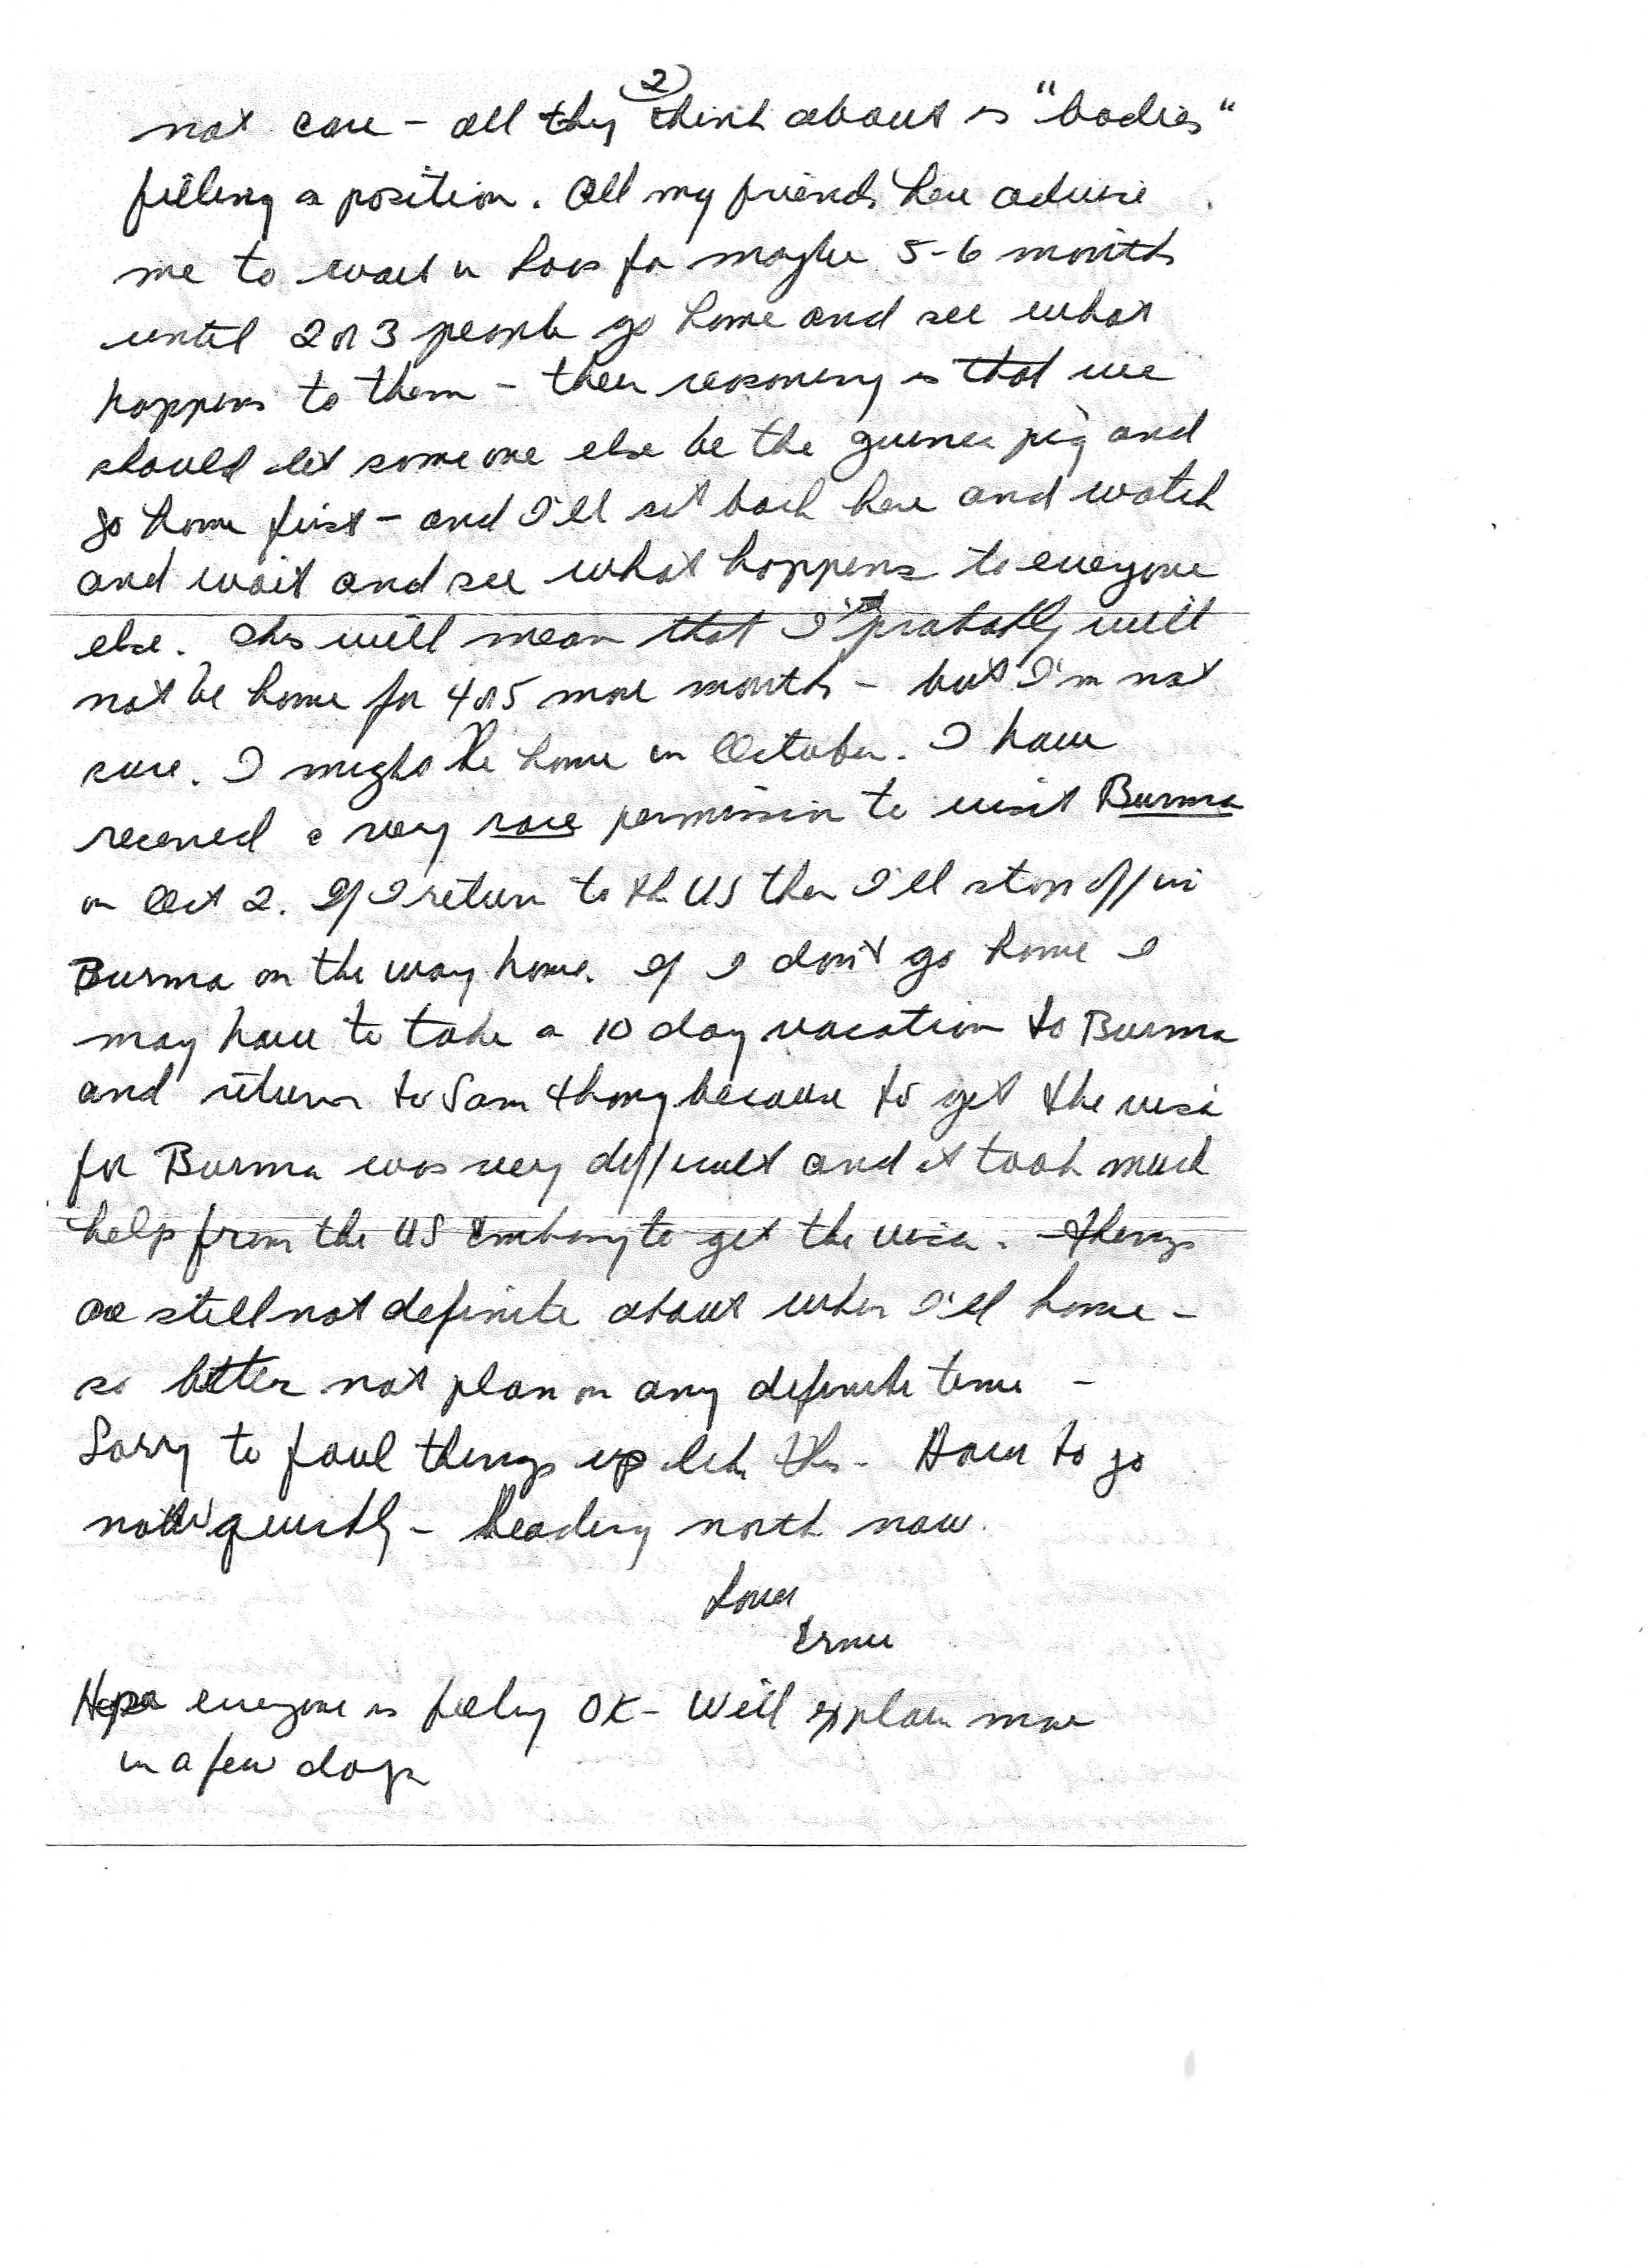 2
not care - all they think about is "bodies"
filling a position. All my friends here advise
me to wait in Laos for maybe 5-6 months
until 2 or 3 people go home and see what
happens to them - their reasoning is that we
should let someone else be the guinea pig and
go home first - and I'll sit back here and watch
and wait and see what happens to everyone
else. This will mean that I probably will
not be home for 4 or 5 more months - but I'm not
sure. I might be home in October. I have
received a very rare permission to visit Burma
on Oct 2. If I return to the US then I'll stop off in
Burma on the way home. If I don't go home I
may have to take a 10 day vacation to Burma
and return to Sam Thong because to get the visa
for Burma was very difficult and it took much
help from the US Embassy to get the visa. - Things
are still not definite about when I'll home -
so better not plan on any definite time -
Sorry to foul things up like this - Have to go
quickly - Heading north now.
Love
Ernie
Hope everyone is feeling OK - Will explain more
in a few days